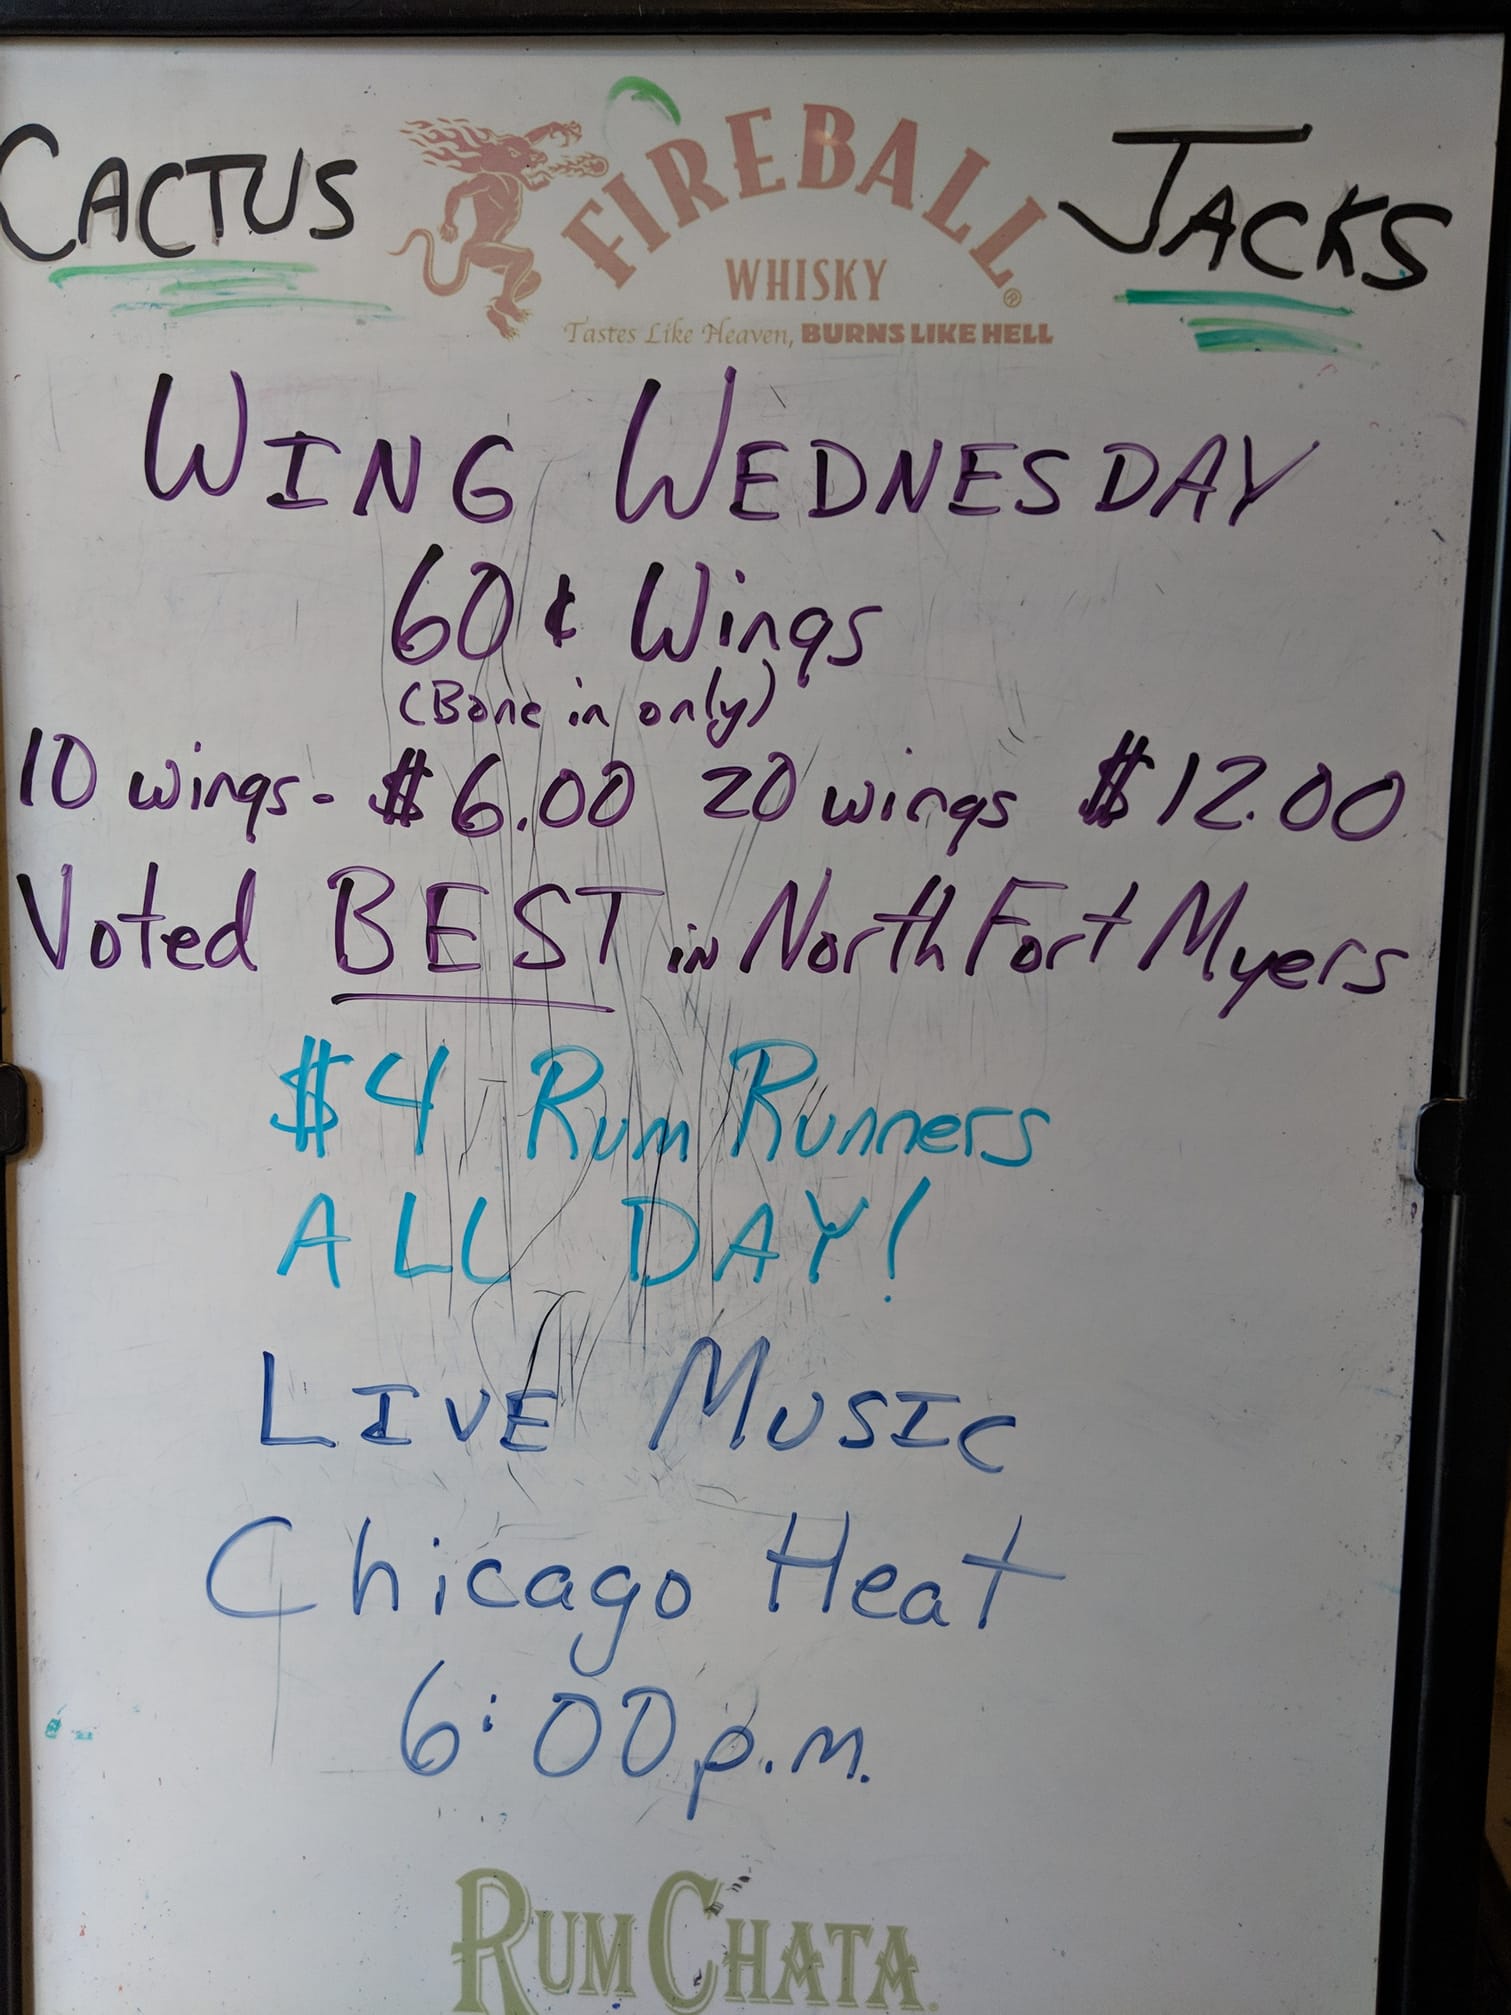 CACTUS FIREBALL JACKS
WHISKY
Tastes Like Heaven, BURNS LIKE HELL
WING WEDNESDAY
60¢ Wings
(Bone in only)
10 wings - $6.00 20 wings $12.00
Voted BEST in North Fort Myers
$4 Rum Runners
ALL DAY!
LIVE MUSIC
Chicago Heat
6:00 p.m.
RUMCHATA